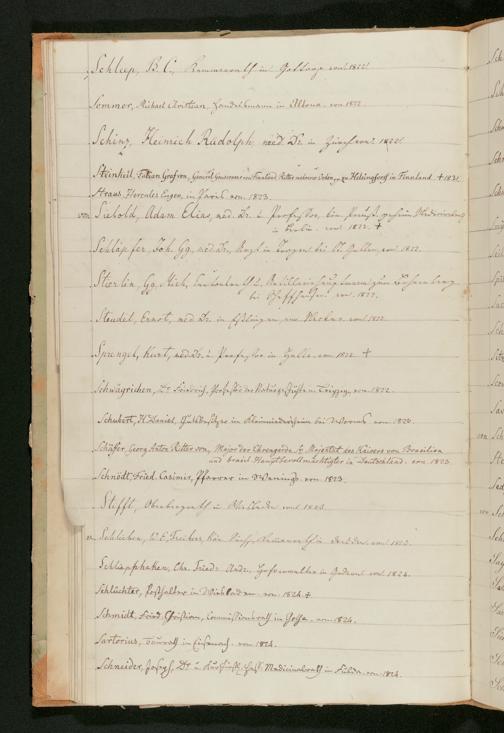 Schleep, B. C., Kammerrath in von 1822.
Sommer, Michael Christian, Handelsmann in Altona. von 1822.
Schinz, Heinrich Rudolph, med. Dr. in Zürich von 1822.
Steinheil, Fabian Grafen, General Gouverneur von Finnland Ritter mehrerer Orden, zu Helsingforss in Finnland. † 1831.
Straus, Hercules Eugen, in Paris von 1823.
von Siebold, Adam Elias, med. Dr. u. Professor, kön. preuß. geheim. Medicinalrath
in Berlin. von 1822. †
Schläpfer, Joh. Gg., med. Dr., in Trogen bei St. Gallen. von 1822.
Stierlin, Gg. Mich.
bei Schaffhausen. von 1822.
Steudel, Ernst, med. Dr. in Esslingen am Neckar. von 1822.
Sprengel, Kurt, med. Dr. u. Professor in Halle. von 1822. †
Schwägrichen, Dr. Friedrich, Professor der Naturgeschichte in Leipzig, von 1822.
Schubert, H. Daniel, Gutsbesitzer in Kleinniedesheim bei Worms von 1823.
Schäfer, Georg Anton Ritter von, Major der Ehrengarde Sr. Majestät des Kaisers von Brasilien
und brasil. Hauptbevollmächtigter in Deutschland. von 1823.
Schnödt, Fried. Casimir, Pfarrer in Wenings. von 1823.
Stifft, Oberbergrath in Wiesbaden von 1823.
v. Schlieben, W. E. Freiherr, Kön. Sächs. Kammerrath in Dresden. von 1823.
Chr. Fried. von 1824.
Schlichter, Posthalter in Wiesbaden. von 1824. †
Schmidt, Fried. Christian, Commissionsrath in Gotha. von 1824.
Sartorius, Baurath in Eisenach. von 1824.
Schneider, Joseph, Dr. u. Kurfürstl. Hess. Medicinalrath in Fulda. von 1824.